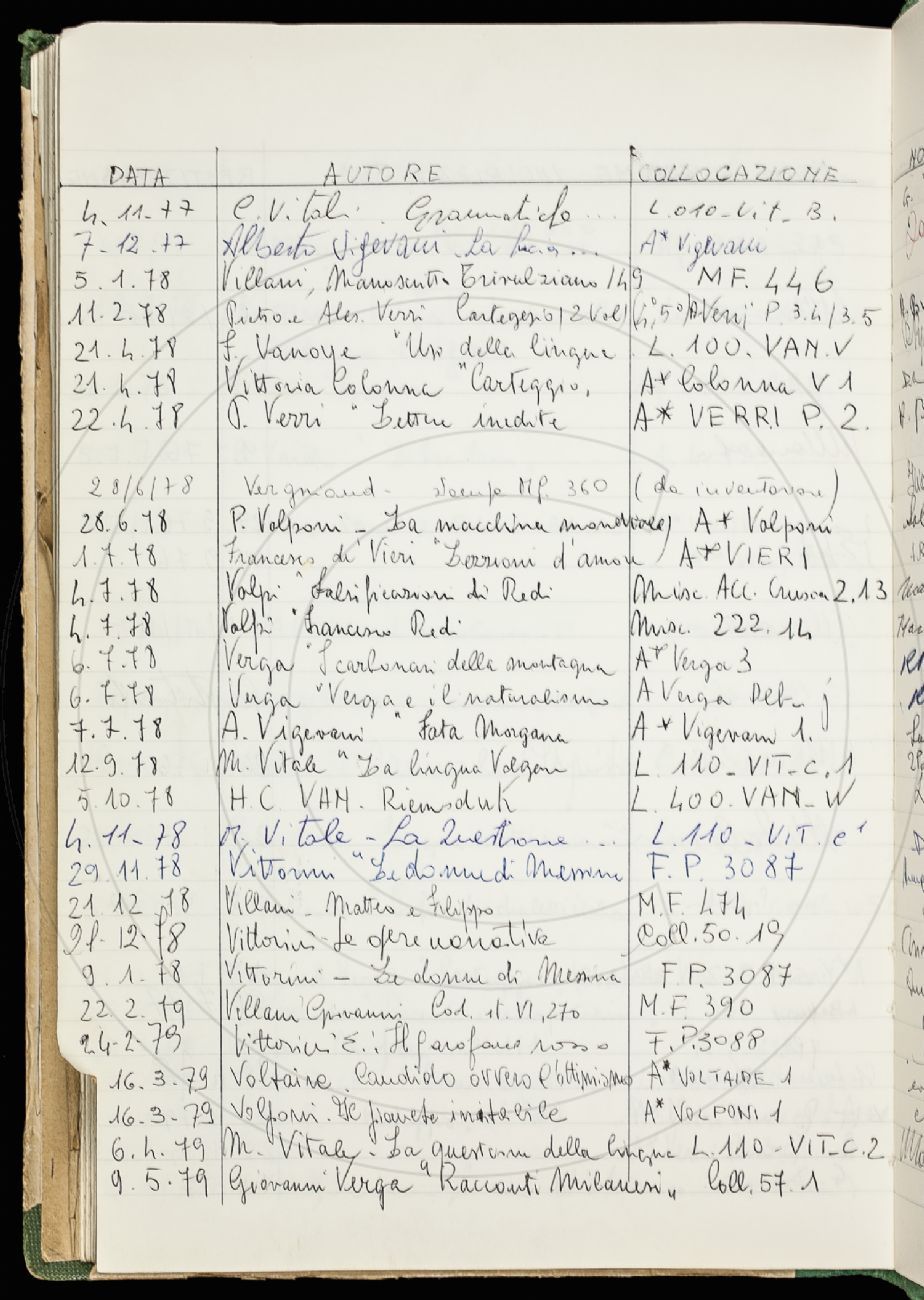 DATA AUTORE COLLOCAZIONE
4.11-77 C. Vitali. Grammatich ... L.010-Vit-B.
7-12.77 Alberto Vigevani - La ... A* Vigevani
5.1.78 Villani, Manoscritto Trivulziano 149 MF. 446
11.2.78 Pietro e Ales. Verri Carteggio (2 Vol) (4°, 5°) A* Verri P. 3.4/3.5
21.4.78 F. Vanoye "Uso della lingua L.100.VAN.V
21.4.78 Vittoria Colonna "Carteggio. A* Colonna V 1
22.4.78 P. Verri "Lettere inedite A* VERRI P. 2.
28/6/78 Vergniaud - MF. 360 (da inventariare)
28.6.78 P. Volponi - La macchina mondiale) A* Volponi
1.7.78 Francesco de' Vieri "Lezzioni d'amore A* VIERI
4.7.78 Volpi "Falsificazioni di Redi Misc. Acc. Crusca 2.13
4.7.78 Volpi "Francesco Redi Misc. 222.14
6.7.78 Verga "I carbonari della montagna A* Verga 3
6.7.78 Verga "Verga e il naturalismo A Verga Deb. j
7.7.78 A. Vigevani "Fata Morgana A* Vigevani 1.
12.9.78 M. Vitale "La lingua Volgare L. 110-VIT-C.1
5.10.78 H.C. VAN. Riemsdijk L. 400.VAN-W
4.11-78 M. Vitale - La Questione ... L.110-VIT.c1
29.11.78 Vittorini "Le donne di Messina F.P. 3087
21.12.78 Villani - Matteo e Filippo M.F. 474
28-12-78 Vittorini - Le opere narrative Coll.50.19
9.1.78 Vittorini - Le donne di Messina F.P. 3087
22.2.79 Villani Giovanni Cod. it. VI,270 M.F. 390
24-2-79 Vittorini E.: Il garofano rosso F.P.3088
16.3.79 Voltaire. Candido ovvero l'ottimismo A* VOLTAIRE 1
16.3.79 Volponi. Il pianeta irritabile A* VOLPONI 1
6.4.79 M. Vitale - La questione della lingua L.110-VIT-C.2
9.5.79 Giovanni Verga "Racconti Milanesi" Coll.57.1